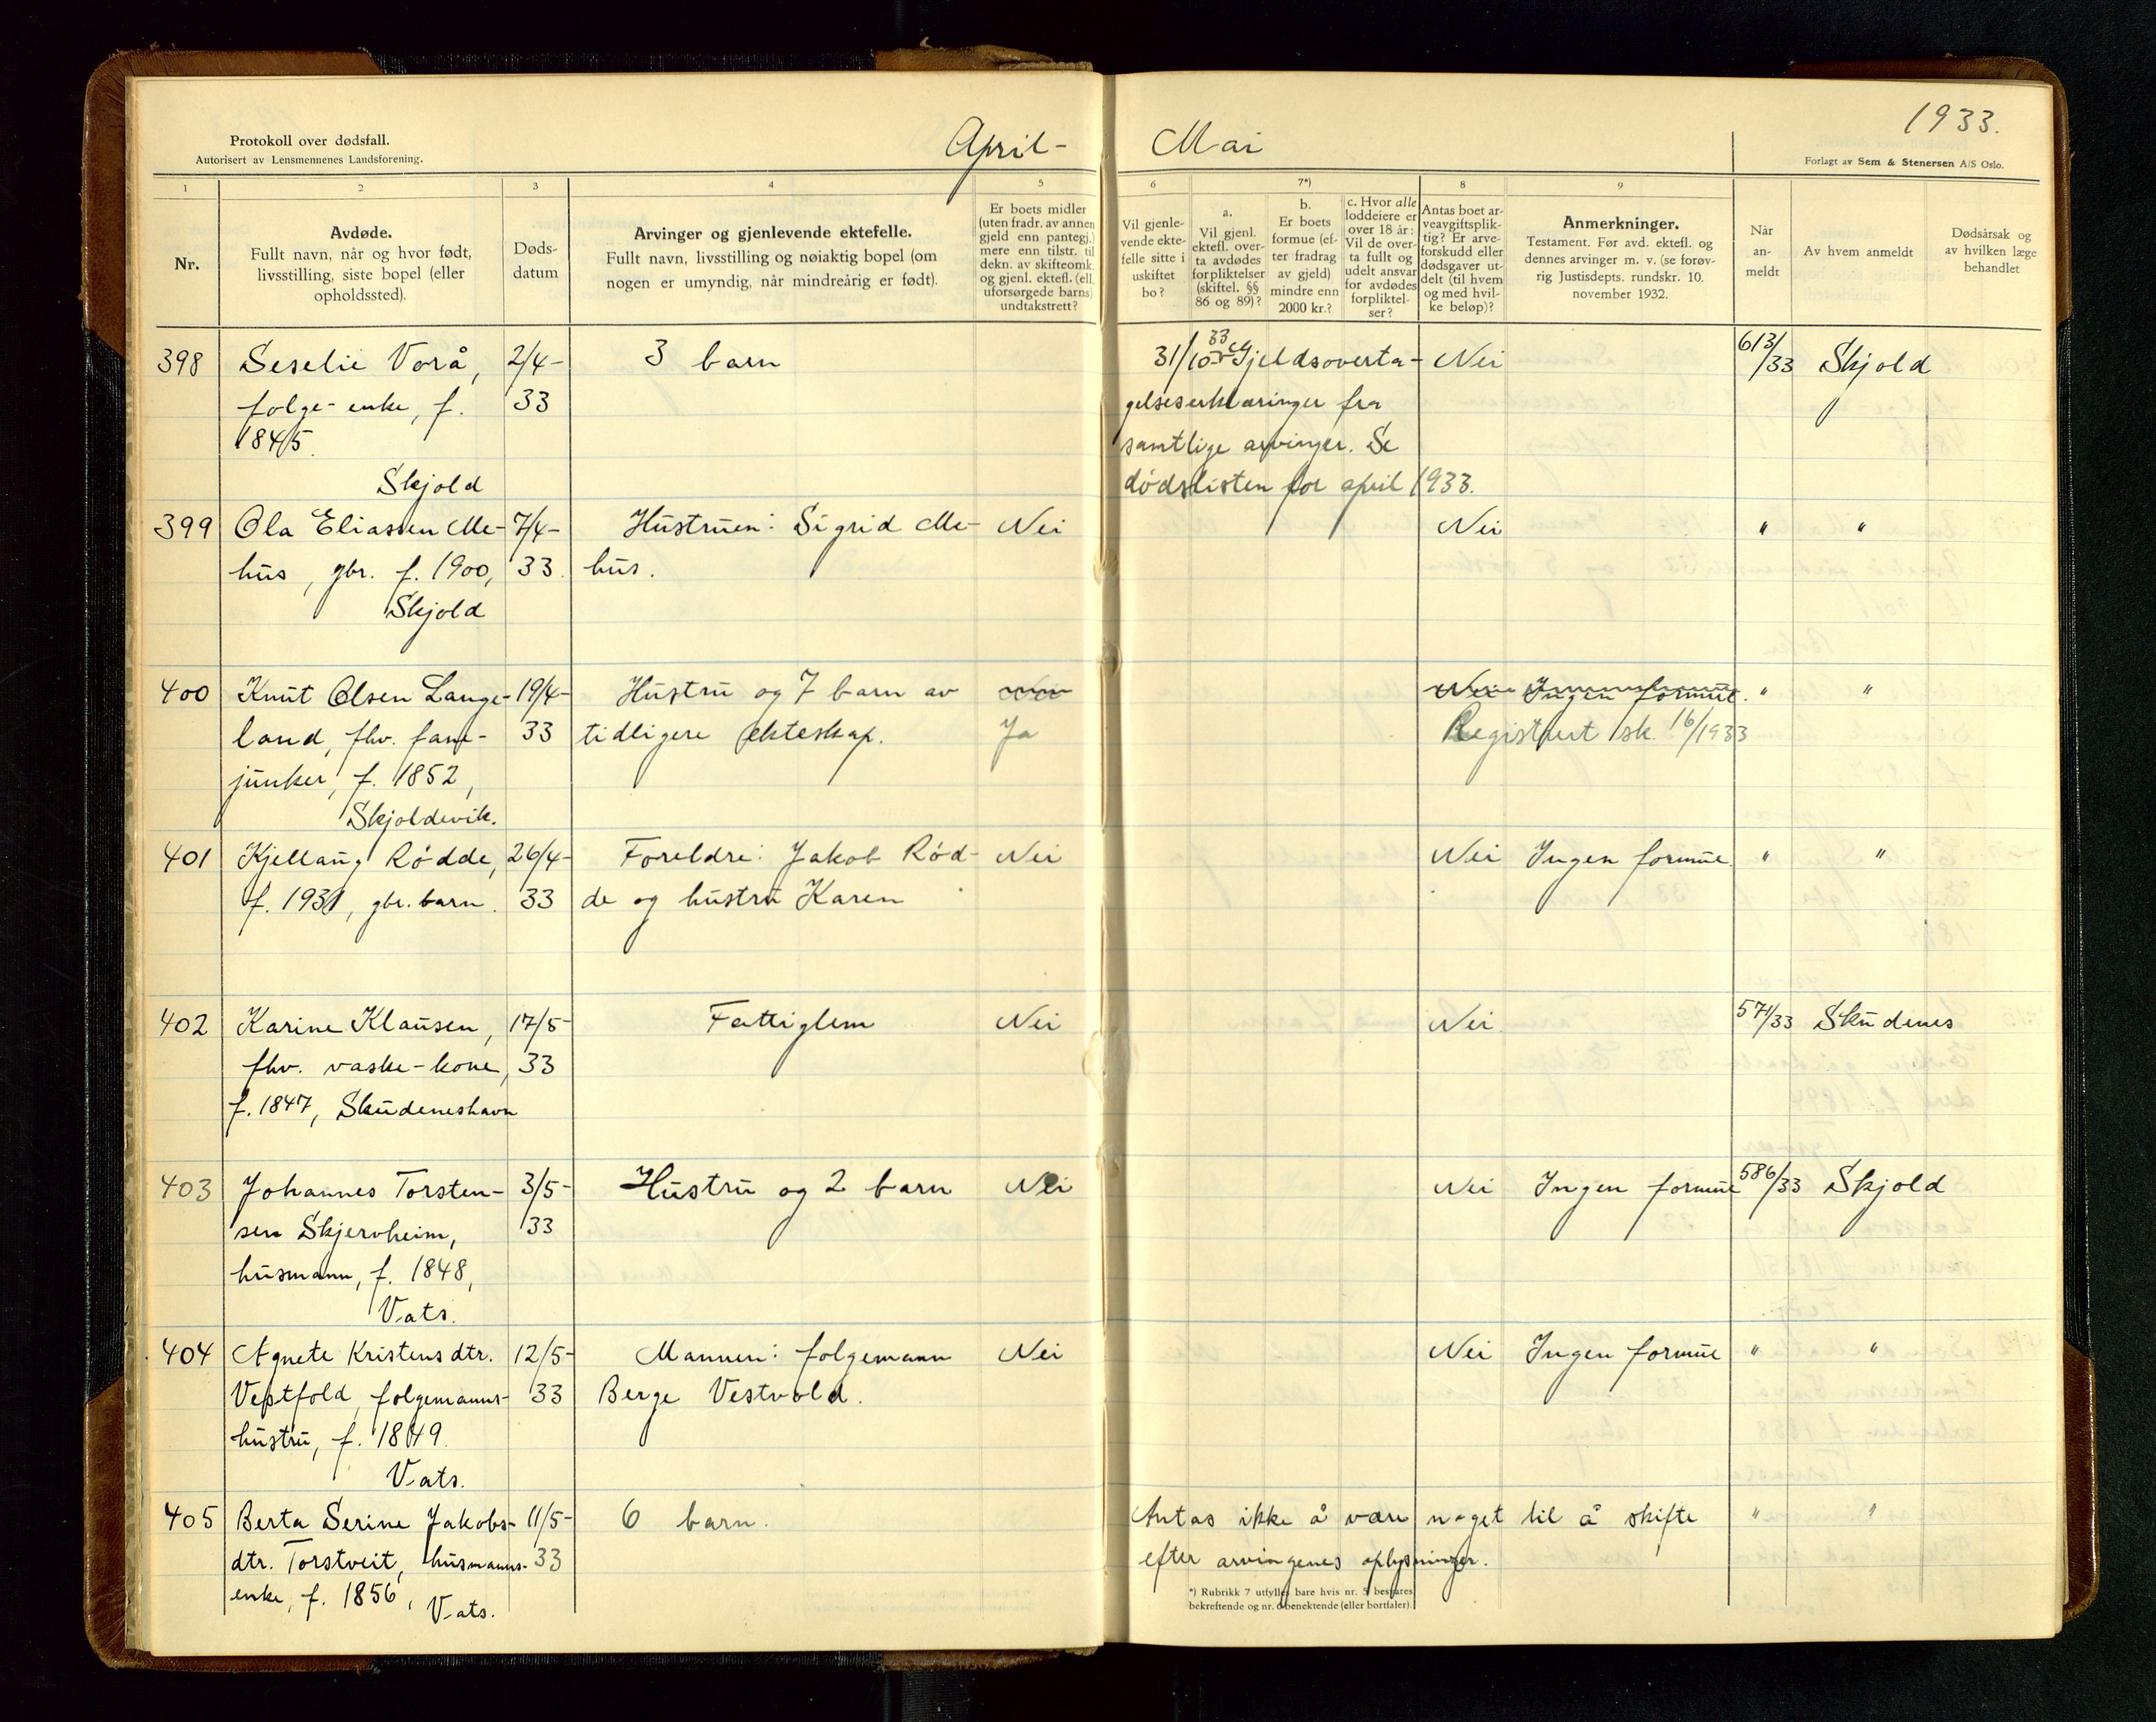 Protokoll over dødsfall.
Autorisert av Lensmennenes Landsforening.
April - Mai
1933.
Forlagt av Sem & Stenersen A/S Oslo.
1
2
3
4
5
6
7*)
8
9
Nr.
Avdøde.
Fullt navn, når og hvor født,
livsstilling, siste bopel (eller
opholdssted).
Døds-
datum
Arvinger og gjenlevende ektefelle.
Fullt navn, livsstilling og nøiaktig bopel (om
nogen er umyndig, når mindreårig er født).
Er boets midler
(uten fradr. av annen
gjeld enn pantegj.)
mere enn tilstr. til
dekn. av skifteomk.
og gjenl. ektefl. (ell.
uforsørgede barns)
undtakstrett?
Vil gjenle-
vende ekte-
felle sitte i
uskiftet
bo?
a.
Vil gjenl.
ektefl. over-
ta avdødes
forpliktelser
(skiftel. §§
86 og 89)?
b.
Er boets
formue (ef-
ter fradrag
av gjeld)
mindre enn
2000 kr.?
c. Hvor alle
loddeiere er
over 18 år:
Vil de over-
ta fullt og
udelt ansvar
for avdødes
forpliktel-
ser?
Antas boet ar-
veavgiftsplik-
tig? Er arve-
forskudd eller
dødsgaver ut-
delt (til hvem
og med hvil-
ke beløp)?
Anmerkninger.
Testament. Før avd. ektefl. og
dennes arvinger m. v. (se forøv-
rig Justisdepts. rundskr. 10.
november 1932.
Når
an-
meldt
Av hvem anmeldt
Dødsårsak og
av hvilken læge
behandlet
398 Seselie Vorå, 2/4- 3 barn 31/10 33 Gjeldsoverta- Nei 613/33 Skjold
folge-enke, f. 33 gelseserklæringer fra
1845. samtlige arvinger. Se
Skjold dødslisten for april 1933.
399 Ola Eliassen Me- 7/4- Hustruen: Sigrid Me- Nei Nei " "
hus, gbr. f. 1900, 33 hus.
Skjold
400 Knut Olsen Lange- 19/4- Hustru og 7 barn av Nei Nei Ingen formue. " "
land, fhv. fane- 33 tidligere ekteskap. Ja Registrert sk. 16/1933
junker, f. 1852,
Skjoldevik.
401 Kjellaug Rødde, 26/4- Foreldre: Jakob Rød- Nei Nei Ingen formue. " "
f. 1931, gbr. barn. 33 de og hustru Karen
402 Karine Klausen, 17/5- Fattiglem Nei Nei. 571/33 Skudenes
fhv. vaske-kone, 33
f. 1847, Skudeneshavn
403 Johannes Torsten- 3/5- Hustru og 2 barn Nei Nei Ingen formue 586/33 Skjold
sen Skjervheim, 33
husmann, f. 1848,
Vats.
404 Agnete Kristensdtr. 12/5- Mannen: folgemann Nei Nei Ingen formue " "
Vestfold, folgemanns- 33 Berge Vestvold.
hustru, f. 1849.
Vats.
405 Berta Serine Jakobs- 11/5- 6 barn. Antas ikke å være noget til å skifte " "
dtr. Torstveit, husmanns- 33 efter arvingenes oplysninger.
enke, f. 1856, Vats.
*) Rubrikk 7 utfylles bare hvis nr. 5 besvares
bekreftende og nr. 6 benektende (eller bortfaler).